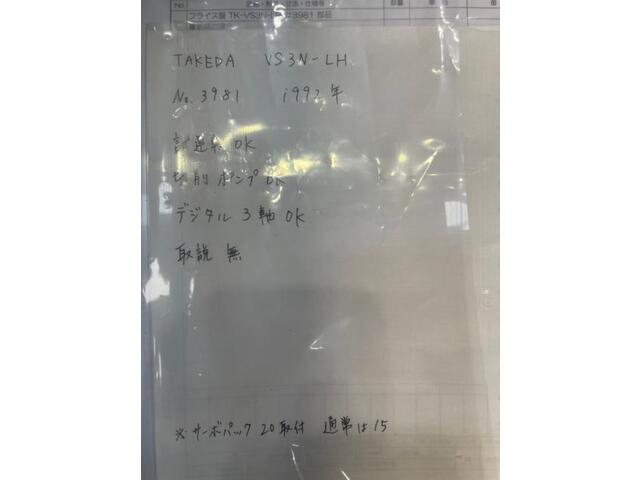 No.
フライス盤 TK-VS3N-LH #3981 部品
TAKEDA VS3N-LH
No. 3981 1992年
試運転 OK
切削ポンプ OK
デジタル 3軸 OK
取説 無
※ サーボパック 20取付 通常は15